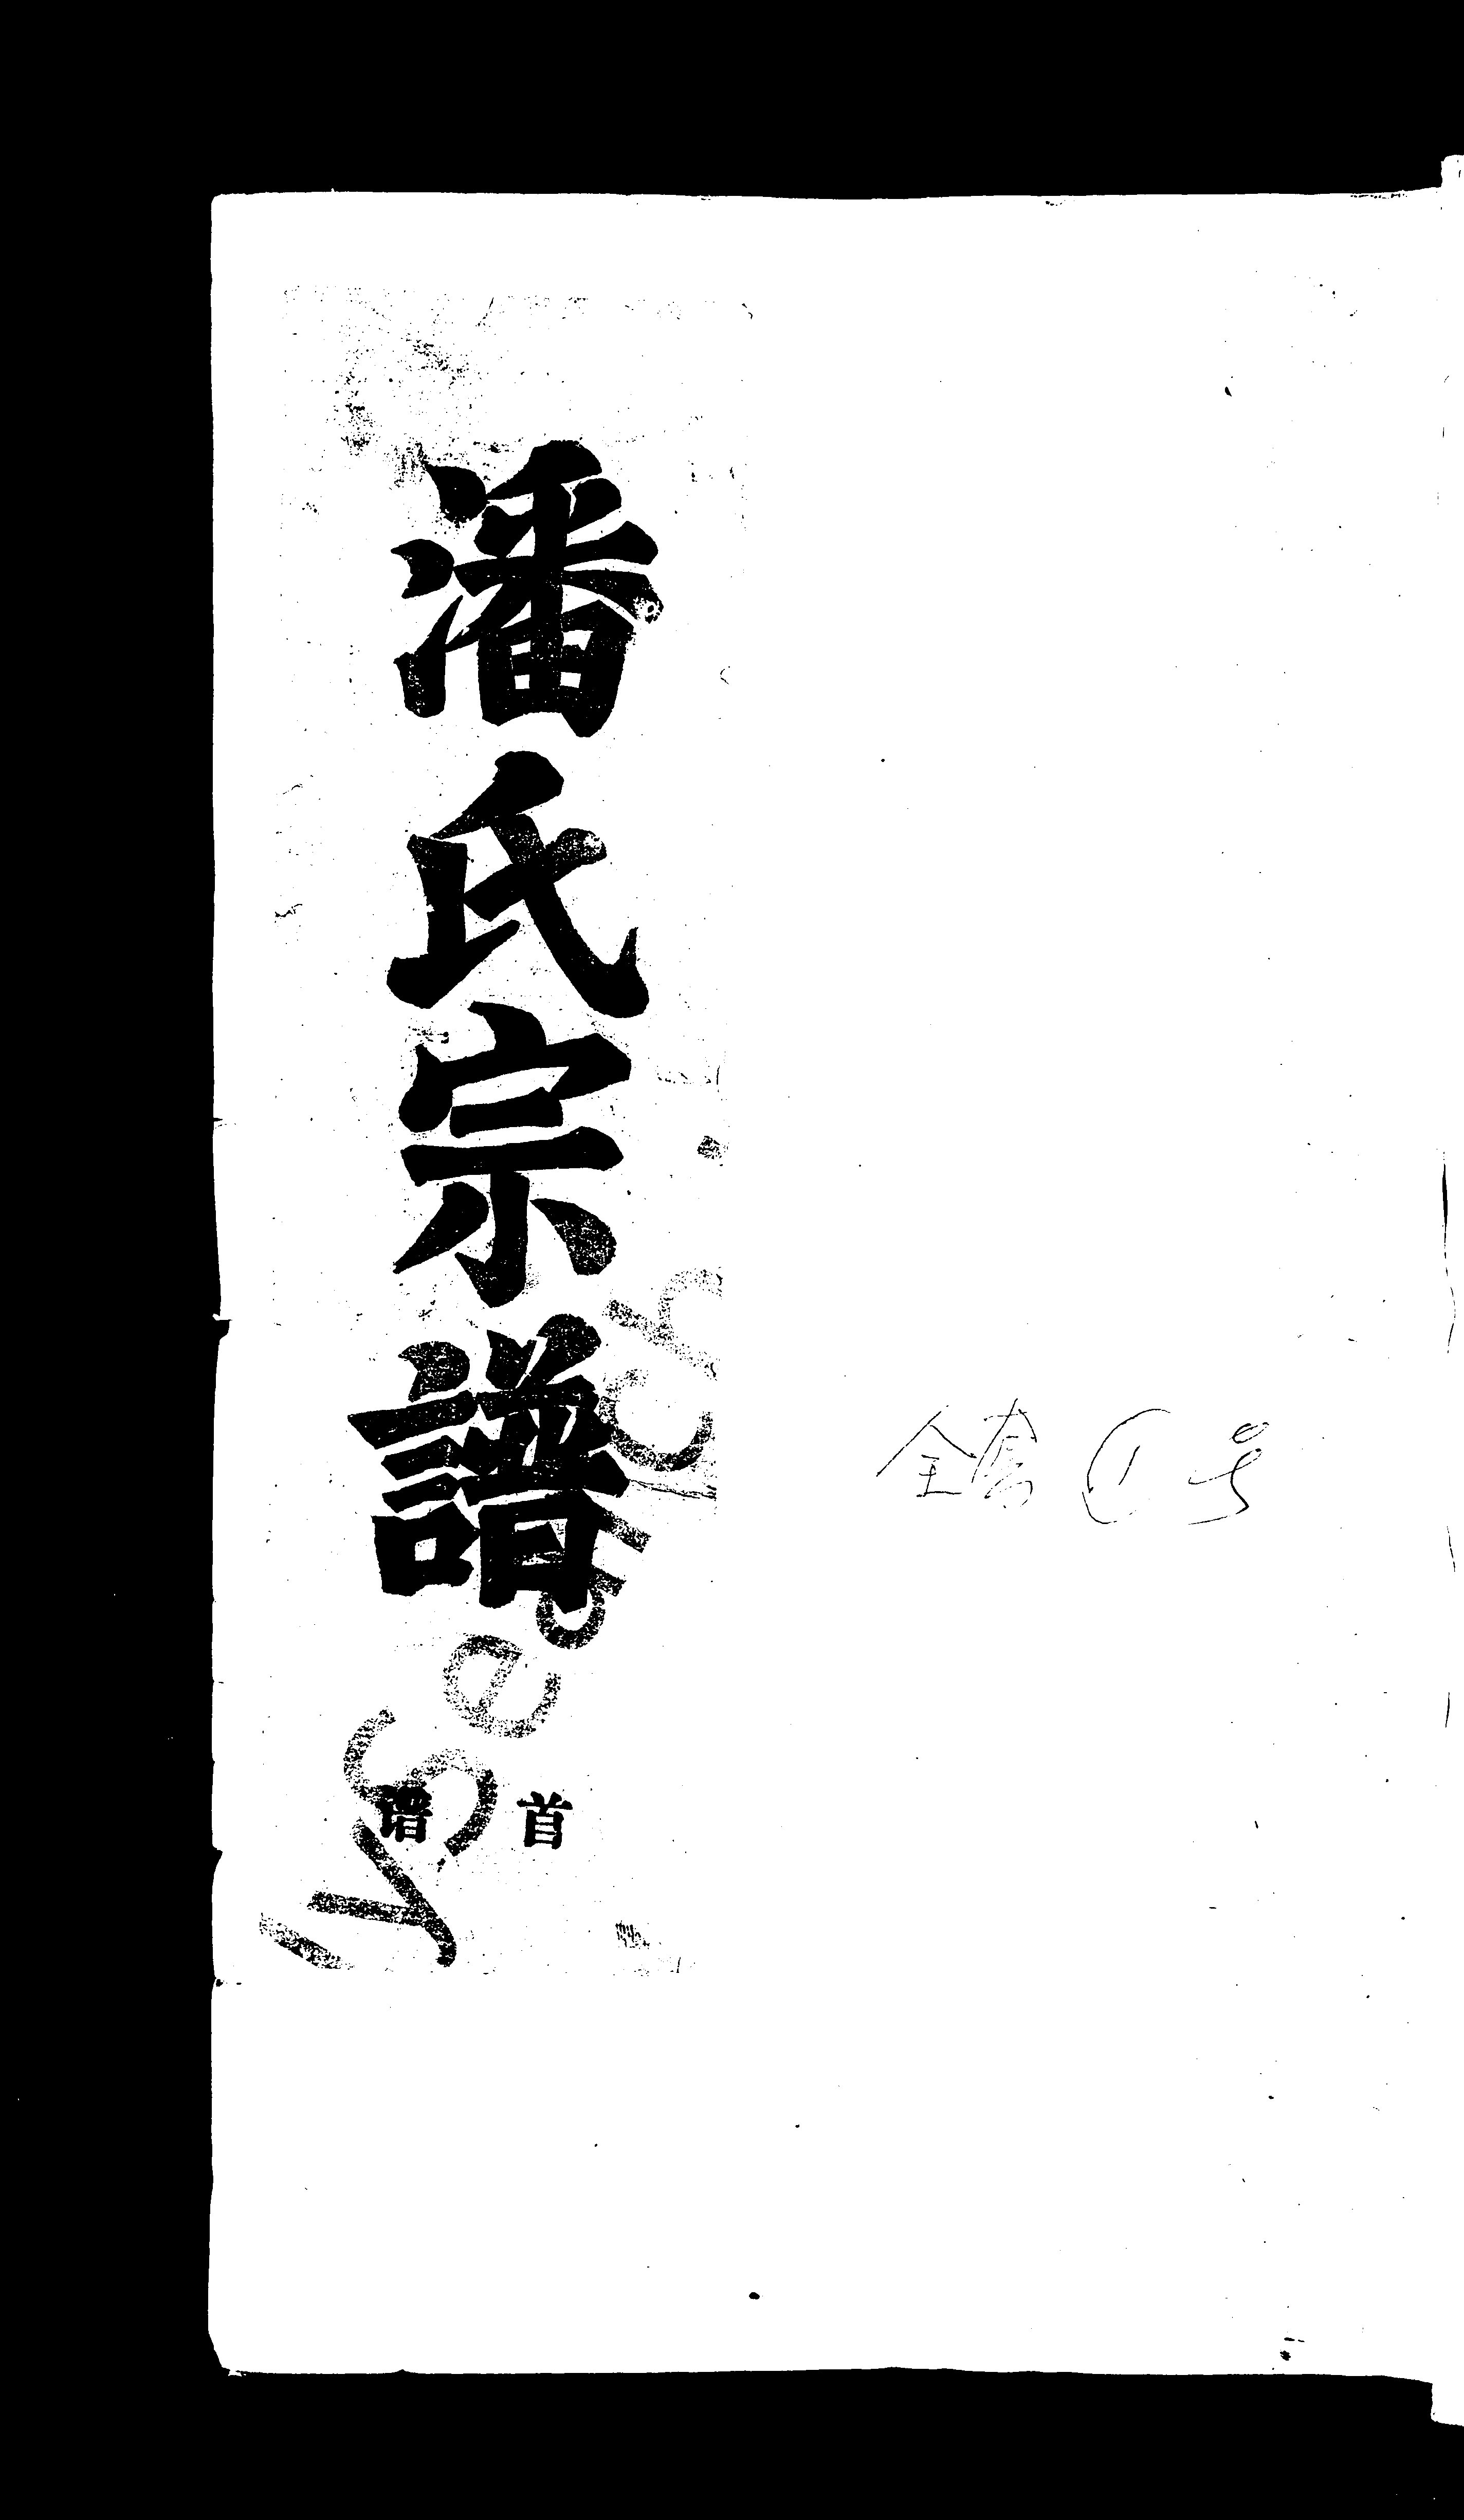 潘氏宗譜
谱首
全套①号